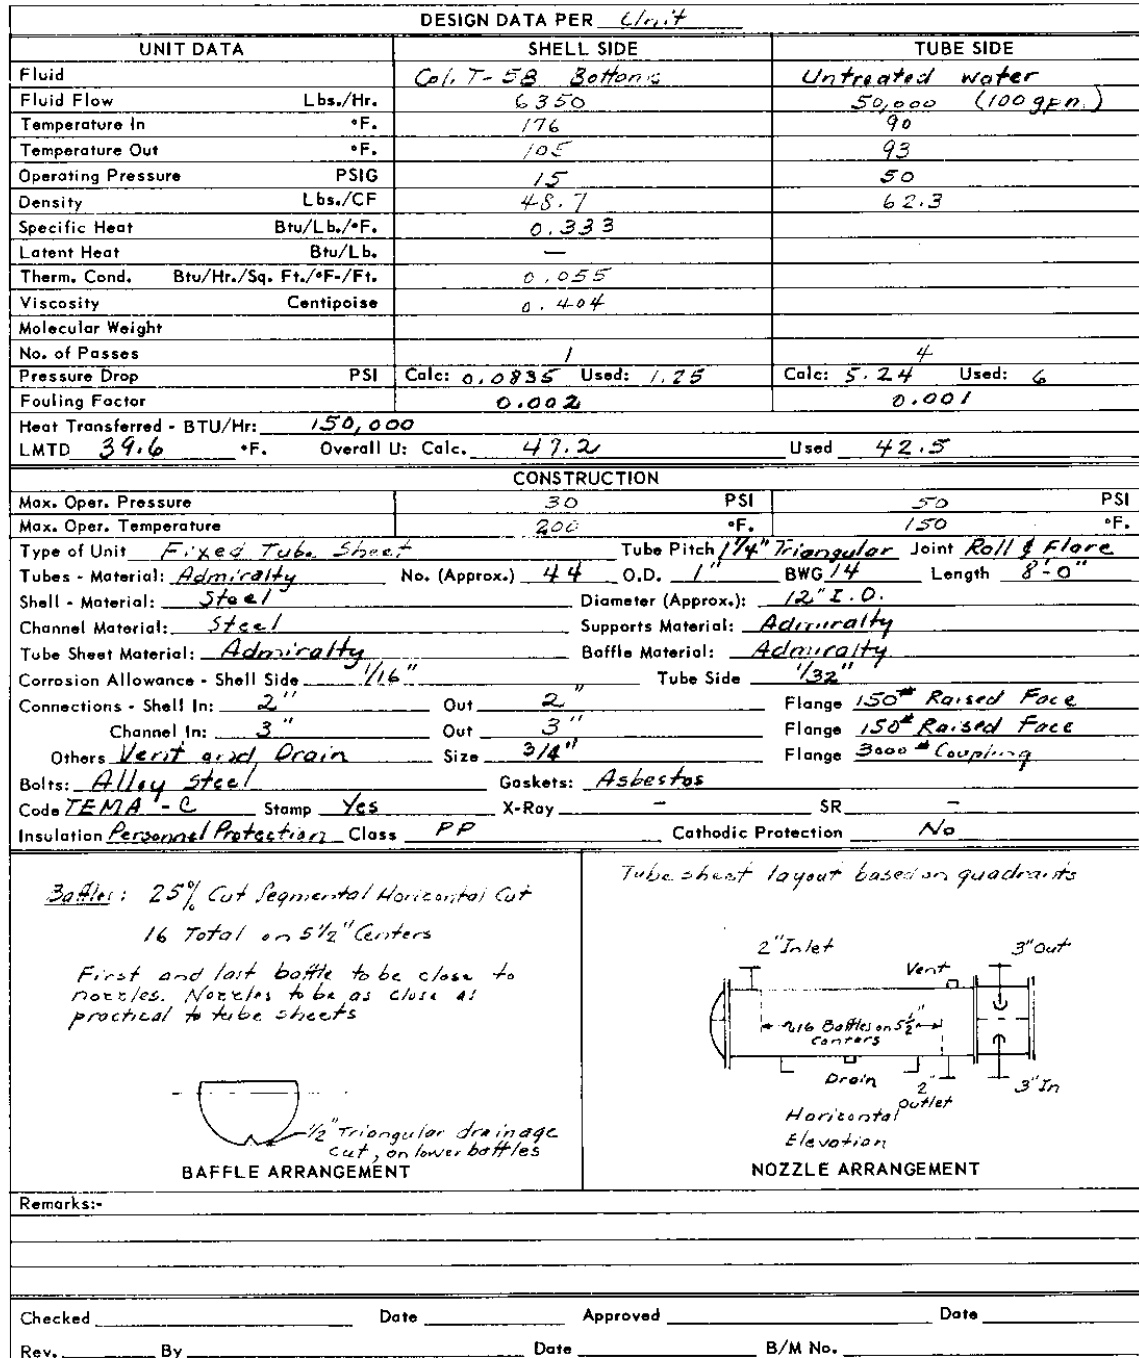 DESIGN DATA PER Unit
UNIT DATA SHELL SIDE TUBE SIDE
Fluid Col. T-5B Bottoms Untreated water
Fluid Flow Lbs./Hr. 6350 50,000 (100 gpm.)
Temperature In °F. 176 90
Temperature Out °F. 105 93
Operating Pressure PSIG 15 50
Density Lbs./CF 48.7 62.3
Specific Heat Btu/Lb./°F. 0.333
Latent Heat Btu/Lb. —
Therm. Cond. Btu/Hr./Sq. Ft./°F-/Ft. 0.055
Viscosity Centipoise 0.404
Molecular Weight
No. of Passes 1 4
Pressure Drop PSI Calc: 0.0835 Used: 1.25 Calc: 5.24 Used: 6
Fouling Factor 0.002 0.001
Heat Transferred - BTU/Hr: 150,000
LMTD 39.6 °F. Overall U: Calc. 47.2 Used 42.5
CONSTRUCTION
Max. Oper. Pressure 30 PSI 50 PSI
Max. Oper. Temperature 200 °F. 150 °F.
Type of Unit Fixed Tube Sheet Tube Pitch 1 1/4" Triangular Joint Roll & Flare
Tubes - Material: Admiralty No. (Approx.) 44 O.D. 1" BWG 14 Length 8'-0"
Shell - Material: Steel Diameter (Approx.): 12" I.D.
Channel Material: Steel Supports Material: Admiralty
Tube Sheet Material: Admiralty Baffle Material: Admiralty
Corrosion Allowance - Shell Side 1/16" Tube Side 1/32"
Connections - Shell In: 2" Out 2" Flange 150# Raised Face
Channel In: 3" Out 3" Flange 150# Raised Face
Others Vent and Drain Size 3/4" Flange 3000# Coupling
Bolts: Alloy Steel Gaskets: Asbestos
Code TEMA - C Stamp Yes X-Ray - SR -
Insulation Personnel Protection Class PP Cathodic Protection No
Baffles: 25% Cut Segmental Horizontal Cut
16 Total on 5 1/2" Centers
First and last baffle to be close to
nozzles. Nozzles to be as close as
practical to tube sheets
1/2" Triangular drainage
cut, on lower baffles
BAFFLE ARRANGEMENT
Tube sheet layout based on quadrants
2" Inlet 3" Out
Vent
16 Baffles on 5 1/2"
centers
Drain 2" 3" In
outlet
Horizontal
Elevation
NOZZLE ARRANGEMENT
Remarks:-
Checked Date Approved Date
Rev. By Date B/M No.